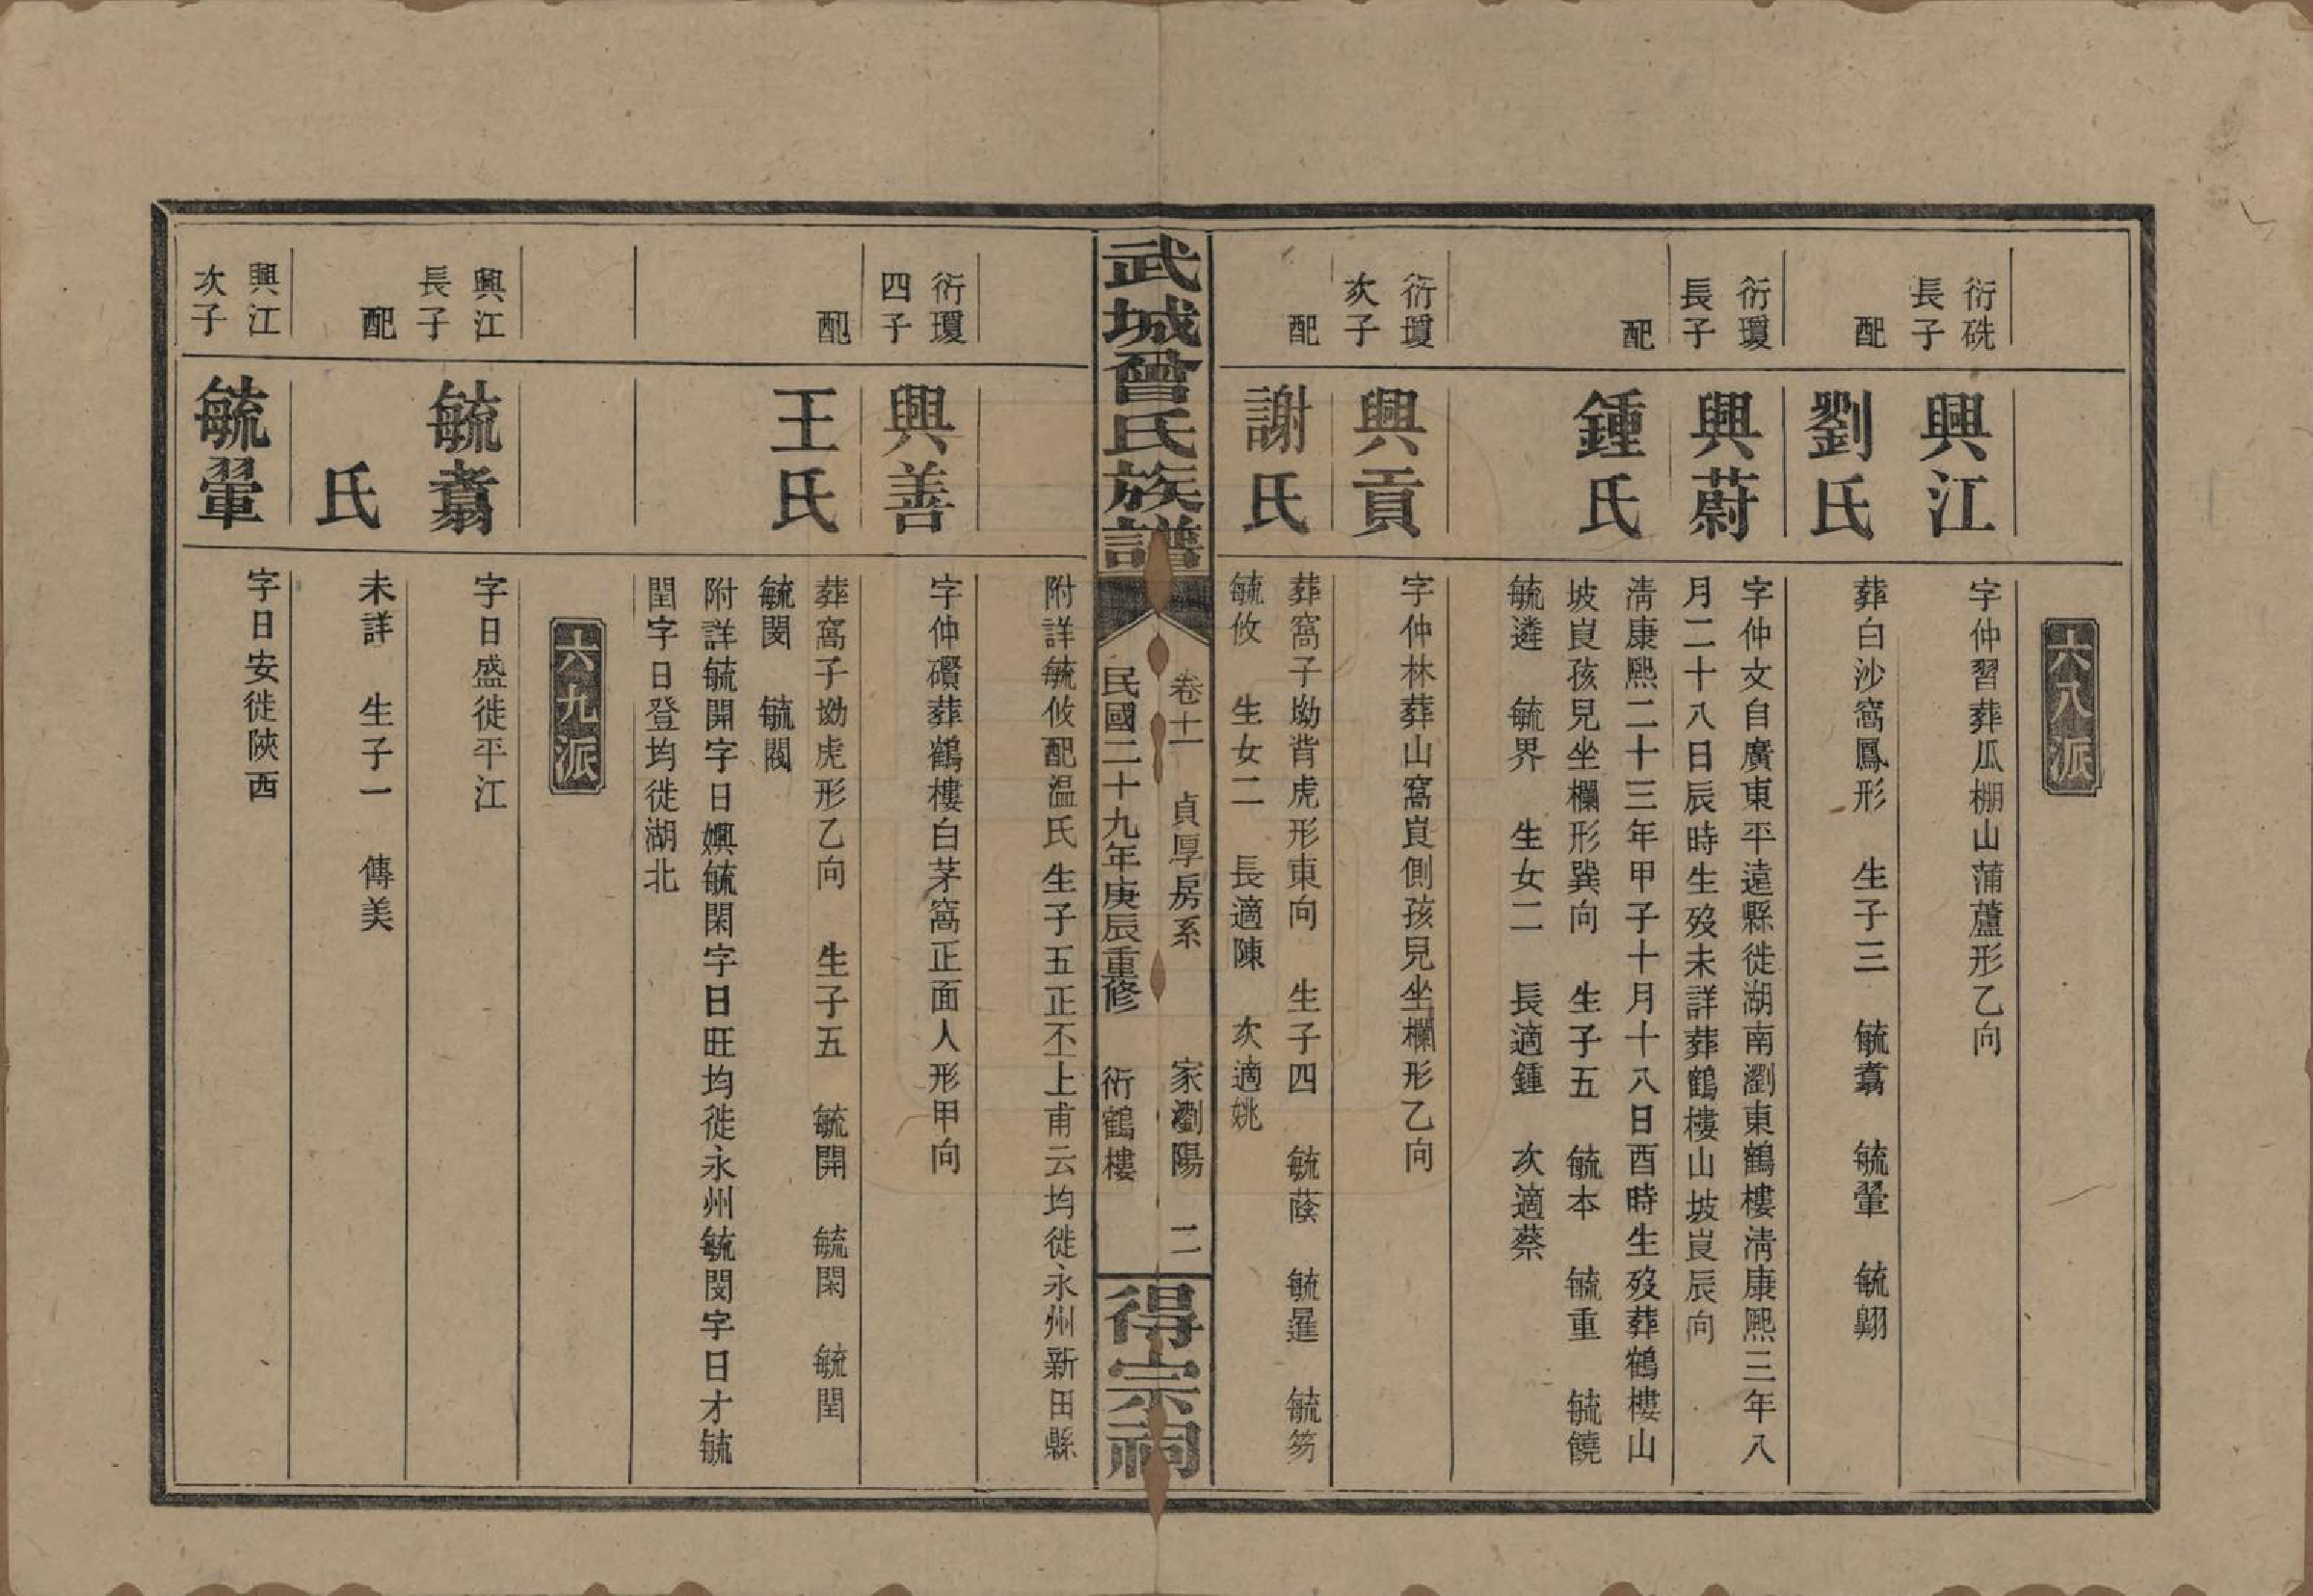 六八派
衍硃長子
興江
字仲習葬瓜棚山蒲蘆形乙向
配
劉氏
葬白沙窩鳳形　生子三　毓翥　毓翬　毓翺
衍瓊長子
興蔚
字仲文自廣東平遠縣徙湖南瀏東鶴樓淸康熙三年八
月二十八日辰時生歿未詳葬鶴樓山坡崀辰向
配
鍾氏
淸康熙二十三年甲子十月十八日酉時生歿葬鶴樓山
坡崀孩兒坐欄形巽向　生子五　毓本　毓重　毓饒
毓遴　毓界　生女二　長適鍾　次適蔡
衍瓊次子
興貢
字仲林葬山窩崀側孩兒坐欄形乙向
配
謝氏
葬窩子坳背虎形東向　生子四　毓蔭　毓暹　毓笏
毓攸　生女二　長適陳　次適姚
武城曾氏族譜
卷十一　貞厚房系　家瀏陽　二
民國二十九年庚辰重修　衍鶴樓
得宗祠
附詳毓攸配温氏生子五正丕上甫云均徙永州新田縣
衍瓊四子
興善
字仲礸葬鶴樓白茅窩正面人形甲向
配
王氏
葬窩子坳虎形乙向　生子五　毓開　毓閑　毓閏
毓閔　毓閥
附詳毓開字日嫻毓閑字日旺均徙永州毓閔字日才毓
閏字日登均徙湖北
六九派
興江長子
毓翥
字日盛徙平江
配
氏
未詳　生子一　傳美
興江次子
毓翬
字日安徙陝西